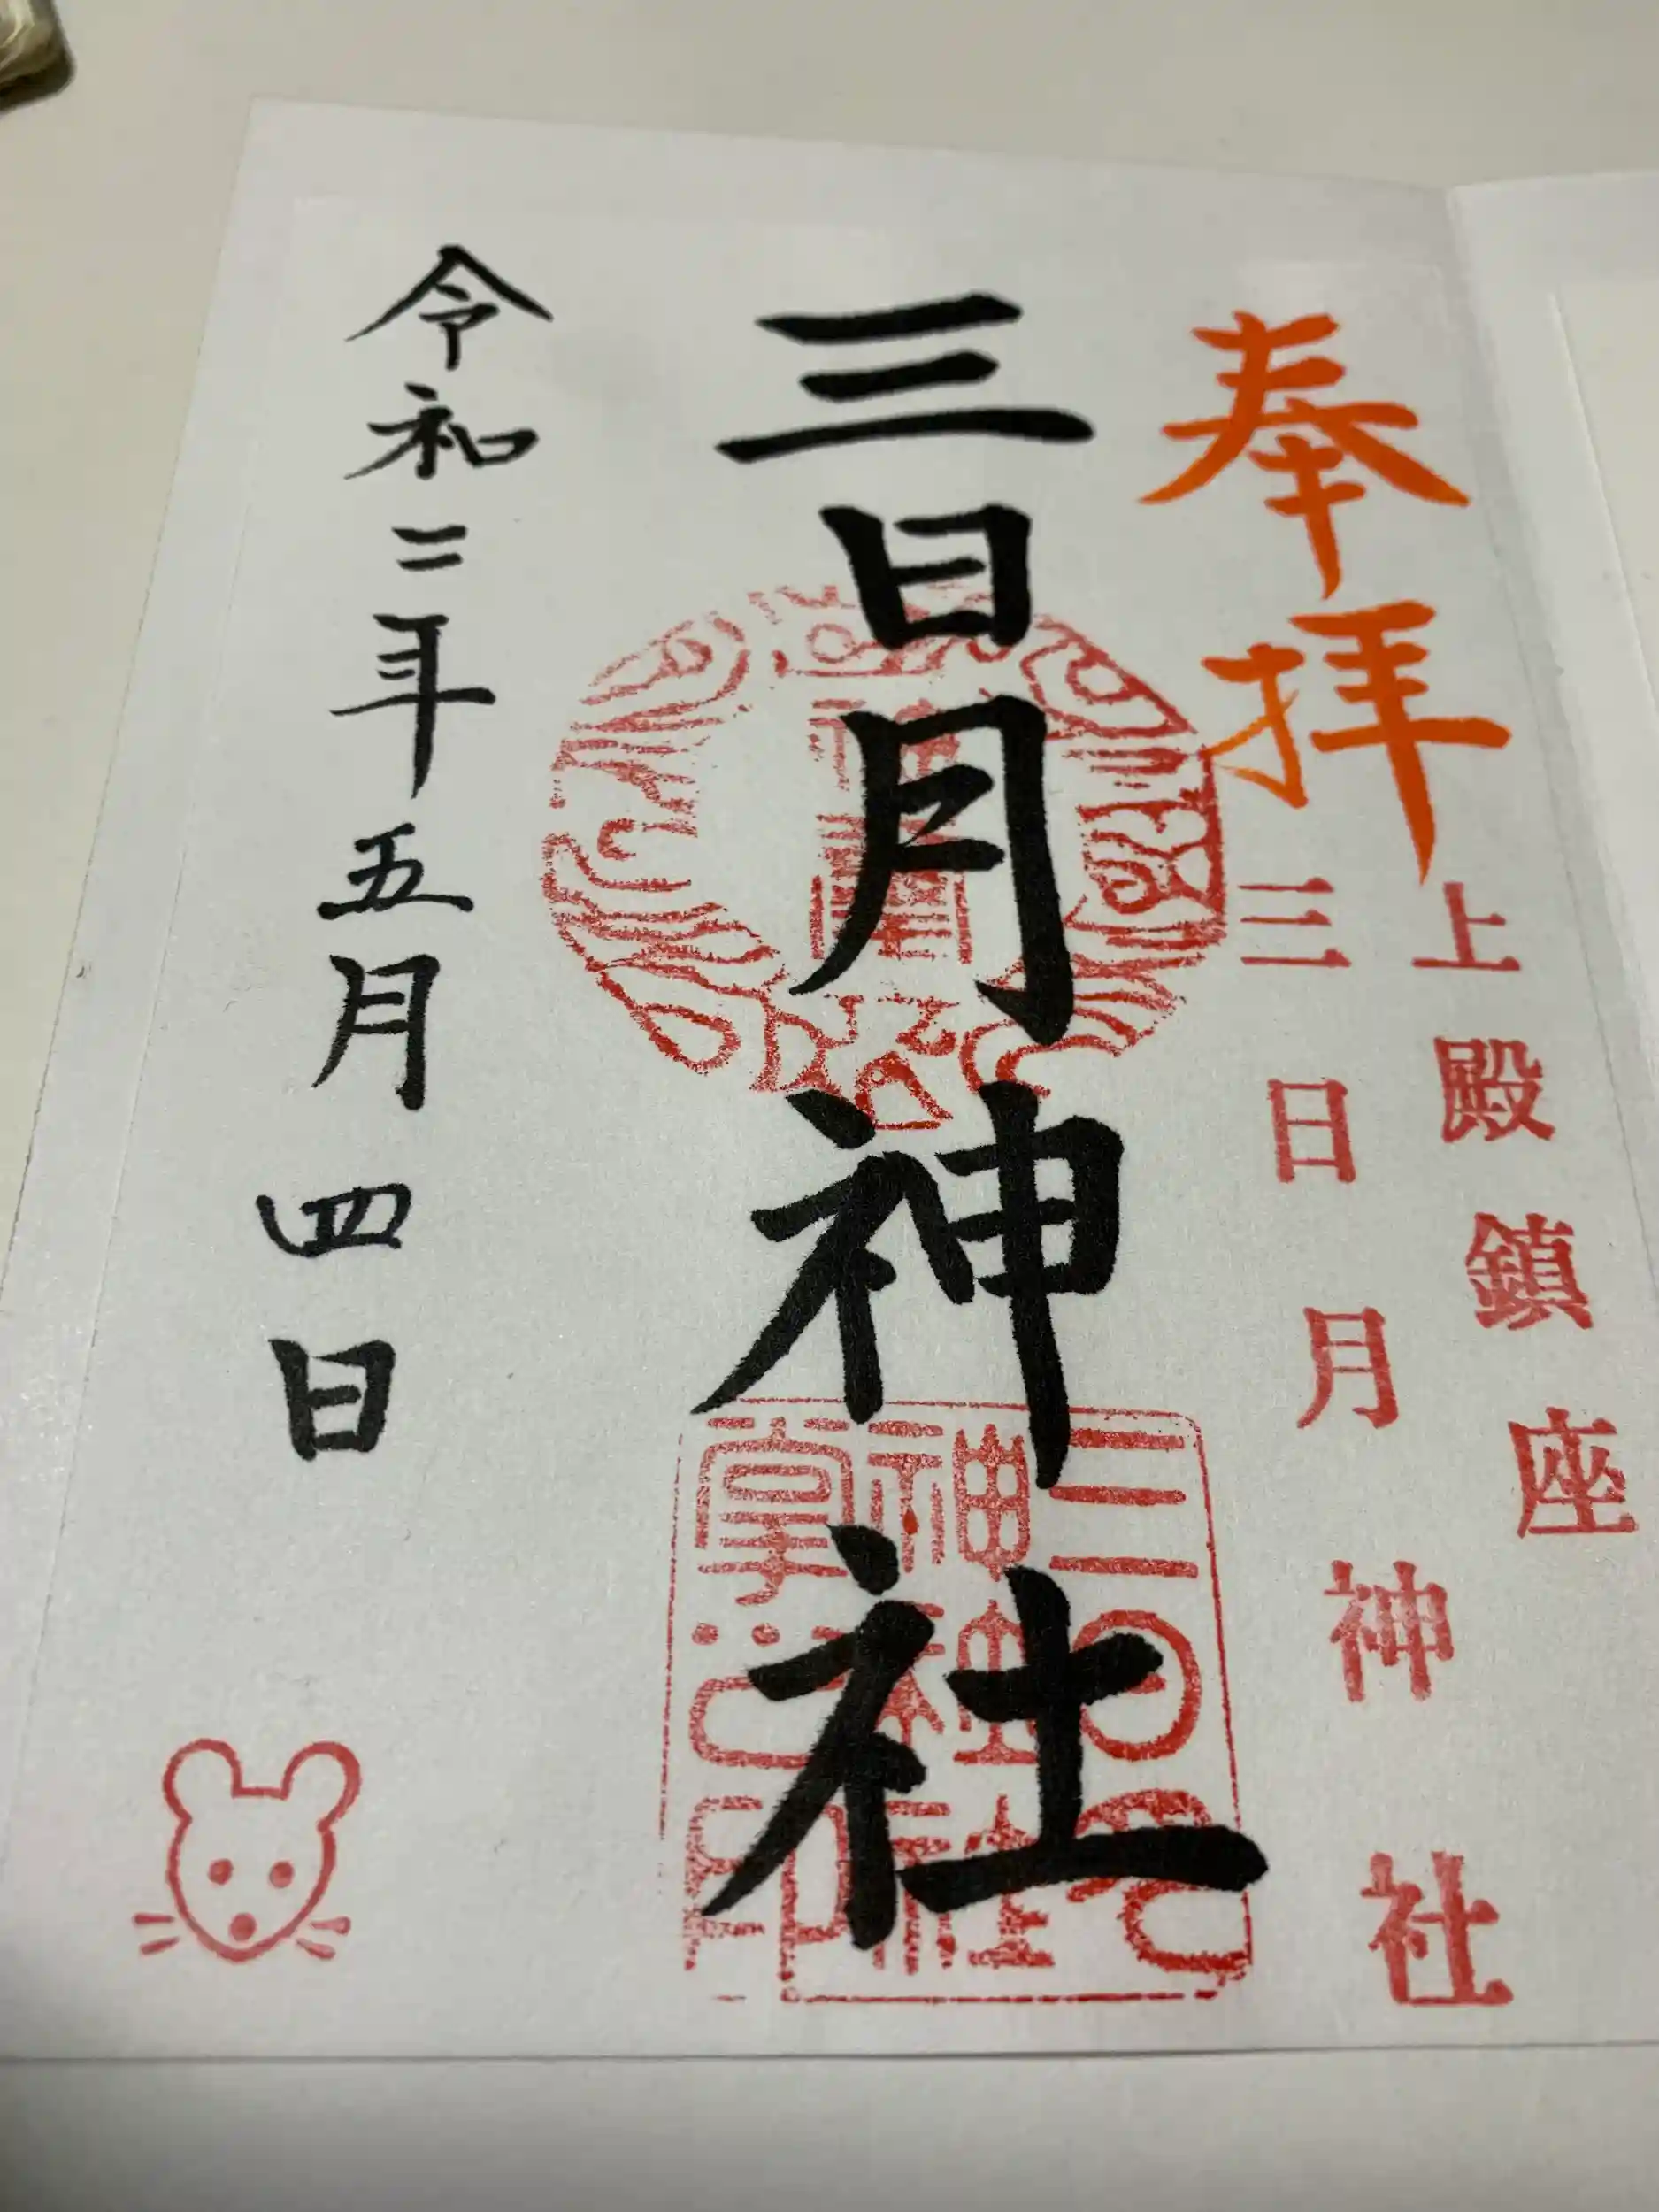 奉拝
上殿鎮座
三日月神社
三日月神社
三日月
神社社
掌之印
令和二年五月四日